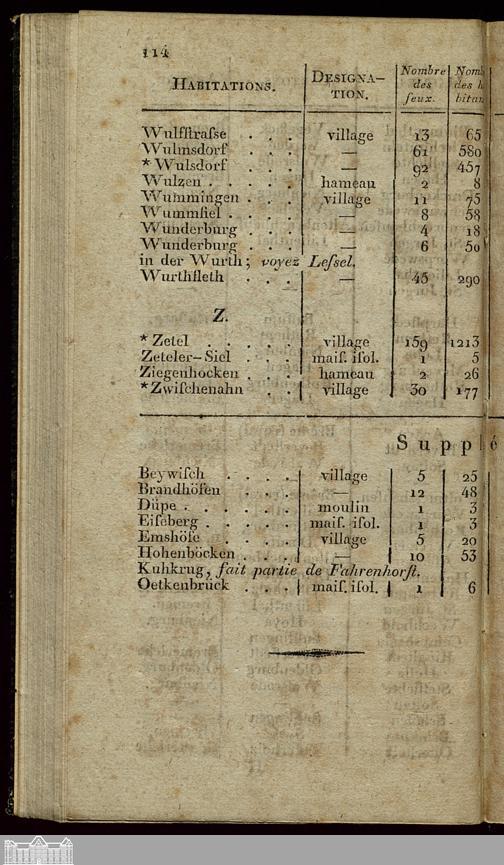 114
HABITATIONS. DESIGNA- Nombre Nomb
TION. des des h
feux. bitan
Wulfſtraſse . . . village 13 65
Wulmsdorf . . . — 61 580
* Wulsdorf . . . — 92 457
Wulzen . . . . . hameau 2 8
Wummingen . . . village 11 75
Wummſiel . . . . — 8 58
Wunderburg . . . — 4 18
Wunderburg . . . — 6 50
in der Wurth; voyez Leſsel.
Wurthfleth . . . — 45 290
Z.
* Zetel . . . . . village 159 1213
Zeteler-Siel . . . maiſ. iſol. 1 5
Ziegenhocken . . . hameau 2 26
* Zwiſchenahn . . village 30 177
Supplé
Beywiſch . . . . village 5 25
Brandhöfen . . . — 12 48
Düpe . . . . . . moulin 1 3
Eiſeberg . . . . . maiſ. iſol. 1 3
Emshöfe . . . . village 5 20
Hohenböcken . . . — 10 53
Kuhkrug, fait partie de Fahrenhorſt.
Oetkenbrück . . . maiſ. iſol. 1 6